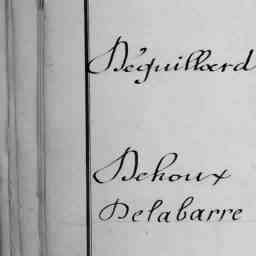 Déguillard
Dehoux
Delabarre